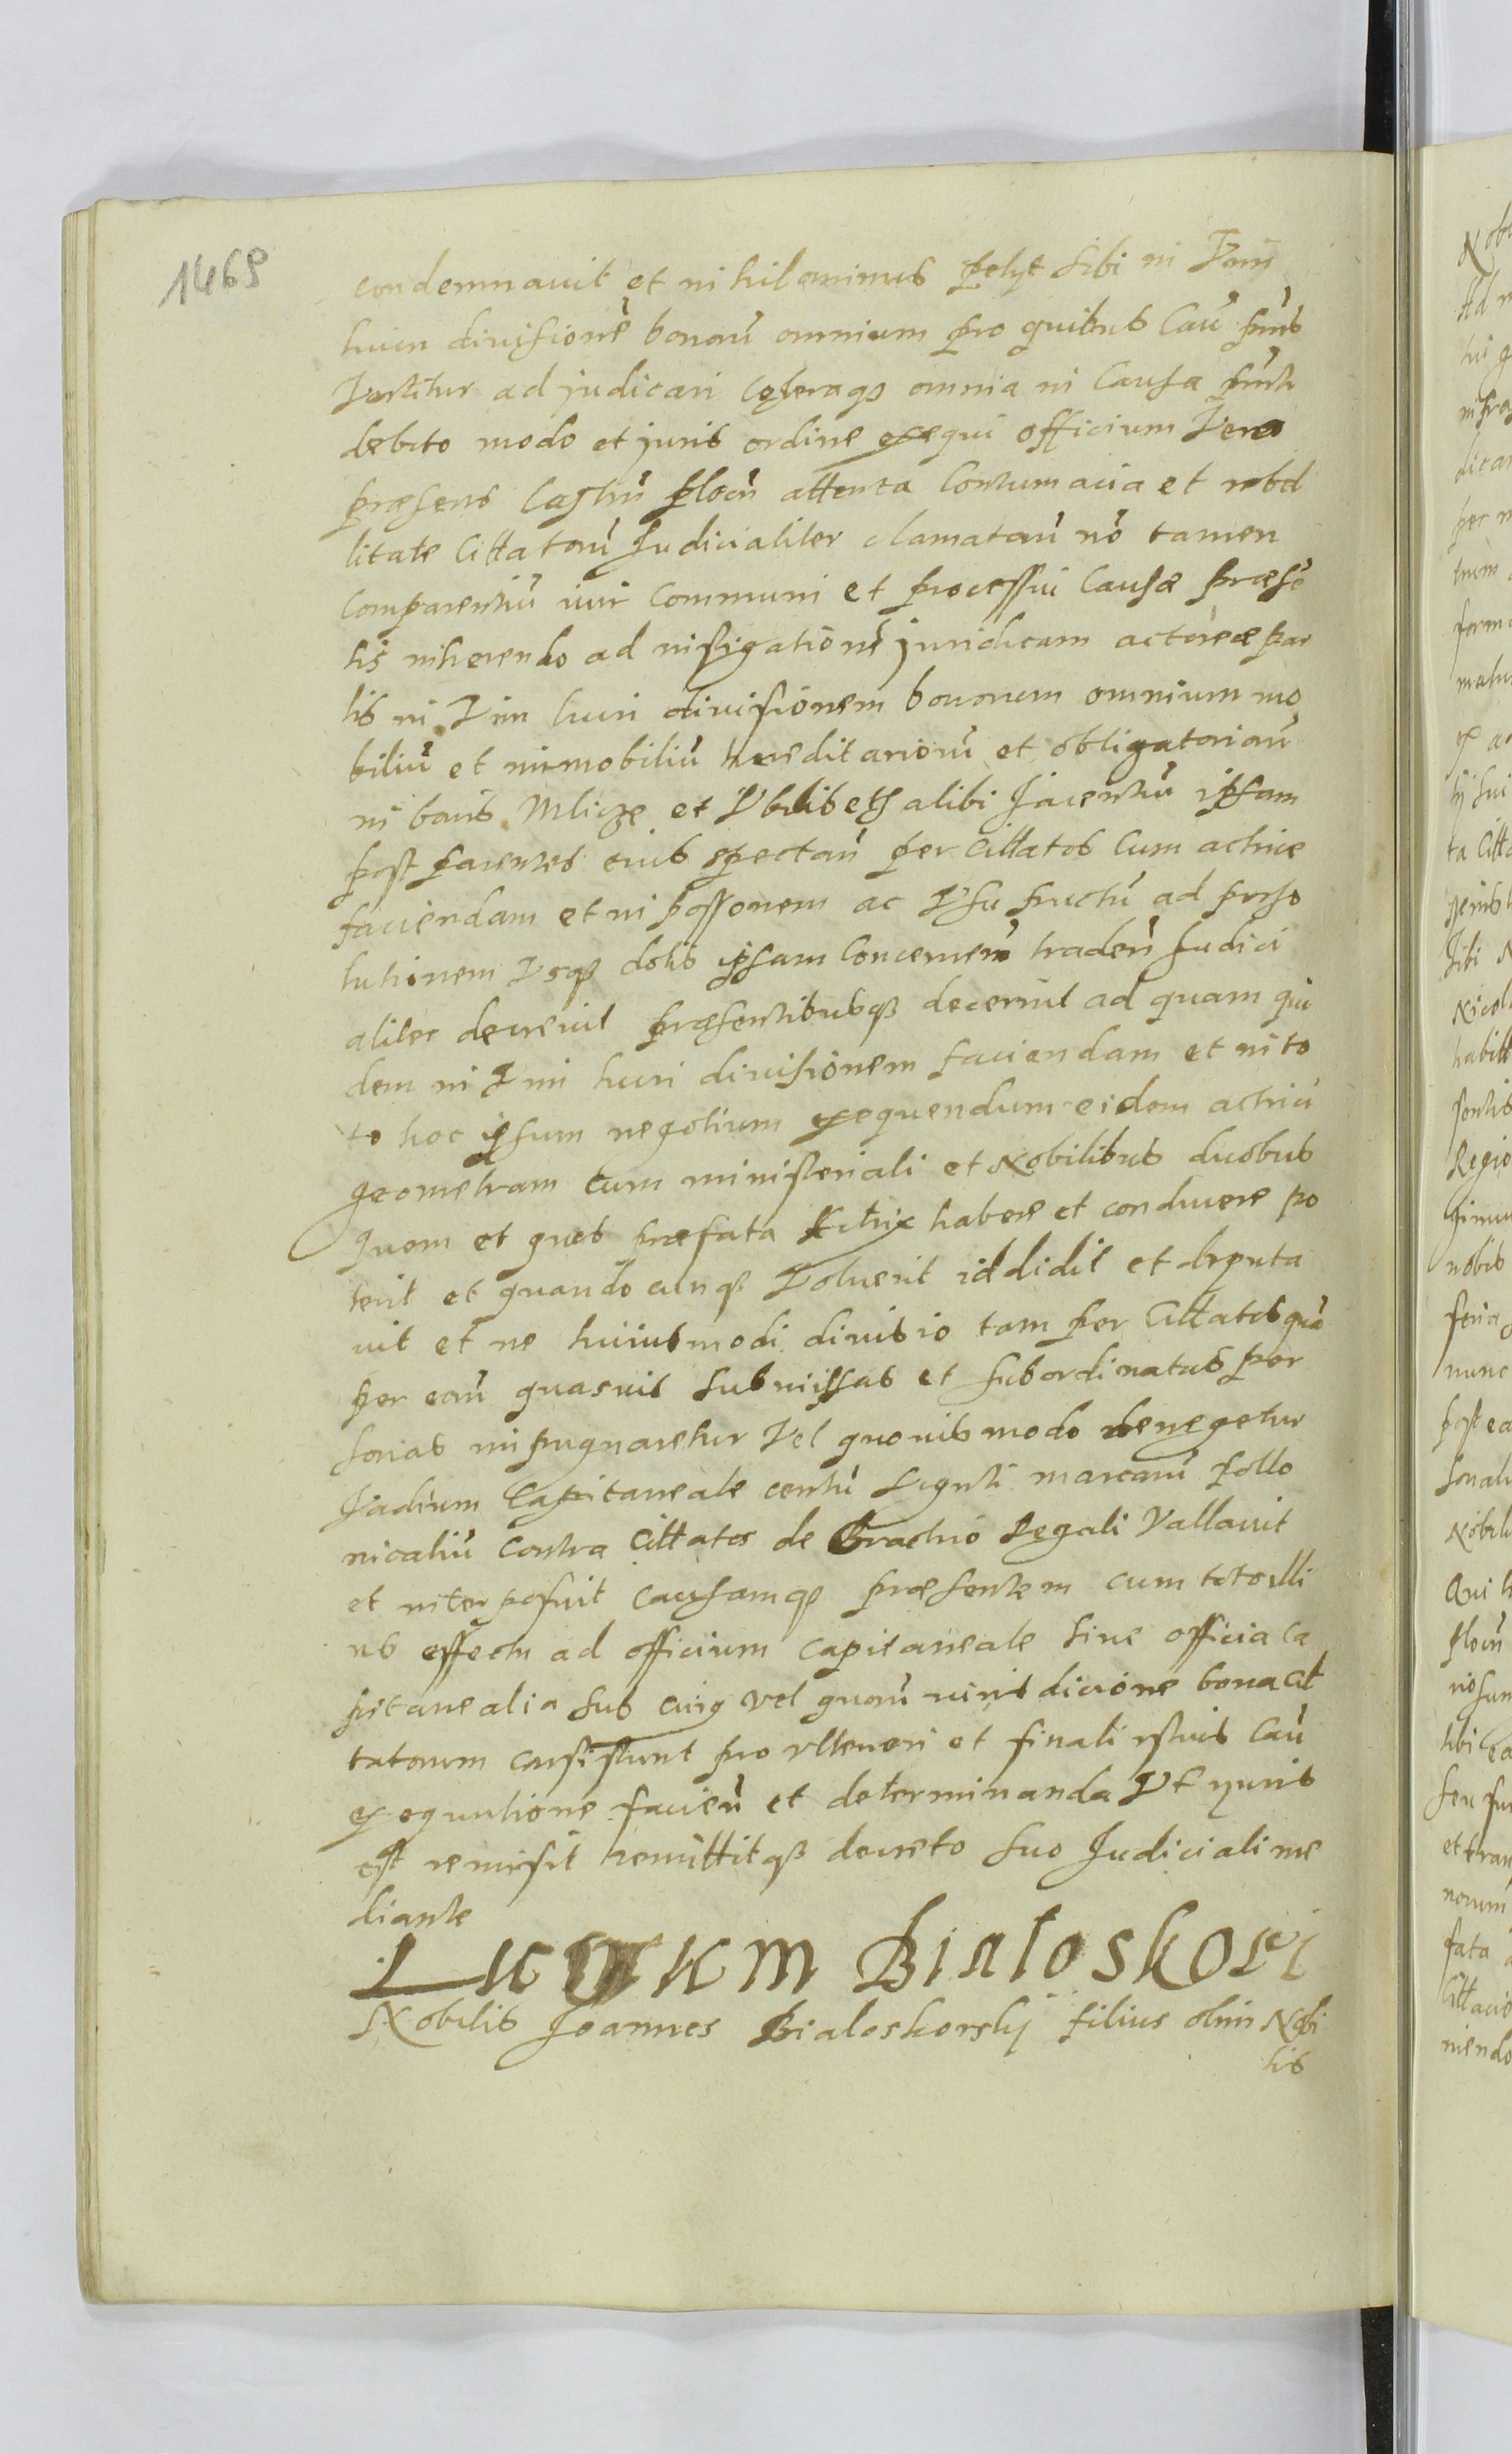 1469
condemnavit et nihilominus petyt sibi in Vim
lucri divisionē bonorū omnium pro quibus Cau pn̄s
Vertitur adjudicari Cęteraqȝ omnia in Causa pn̄ti
debito modo et juris ordine exequi officium Vero
præsens Castrn̄ plocn̄ attenta Contumacia et rebel
litate Cittatorū Judicialiter clamatorū nō tamen
Comparentiū iuri Communi et processui Causæ præsē
tis inherendo ad instigationē juridicam actoreæ par
tis in Vim lucri divisionem bonorum omnium mo
biliū et immobiliū hæreditariorū et obligatoriorū
in bonis Mlicze et Vbilibet alibi Jacentiū ipsam
post parentes eius spectan̄ per Cittatos Cum actrice
faciendam et in possonem ac Vsu fructū ad perso
lutionem Vsqȝ dotis ipsam Concernen̄ traden̄ Judici
aliter decrevit præsentibusqȝ decernit ad quam qui
dem in Vim lucri divisionem faciendam et in to
to hoc ipsum negotium exequendum eidem actrici
geometram cum ministeriali et Nobilibus duobus
quem et quos præfata Actrix habere et conducere po
terit et quando cunqȝ Voluerit addidit et deputa
vit et ne huiusmodi divisio tam per Cittatos quā
per eorū quasvis submissas et subordinatas per
sonas impugnaretur Vel quovis modo denegetur
Vadium Capitaneale centū viginti marcarū Pollo
nicaliū Contra Cittatos de Brachio Regali Vallavit
et interposuit causamqȝ præsentem cum toto illi
us effectu ad officium capitaneale sive officia ca
pitanealia sub cuiꝯ vel quorū iuris dicione bona Cit
tatorum consistunt pro vlteriori et finali istius Cau
exequutione facien̄ et determinanda Vt iuris
est remisit remittitqȝ decreto suo Judiciali me
diante
Lucrum Bialoskorj
Nobilis Joannes Bialoskorskj filius olim Nobi
lis